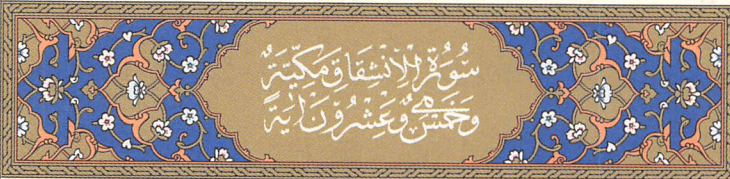 سُورَةُ الْاِنْشِقَاقِ مَكِّيَّةٌ
وَخَمْسٌ وَعِشْرُونَ اٰيَةً